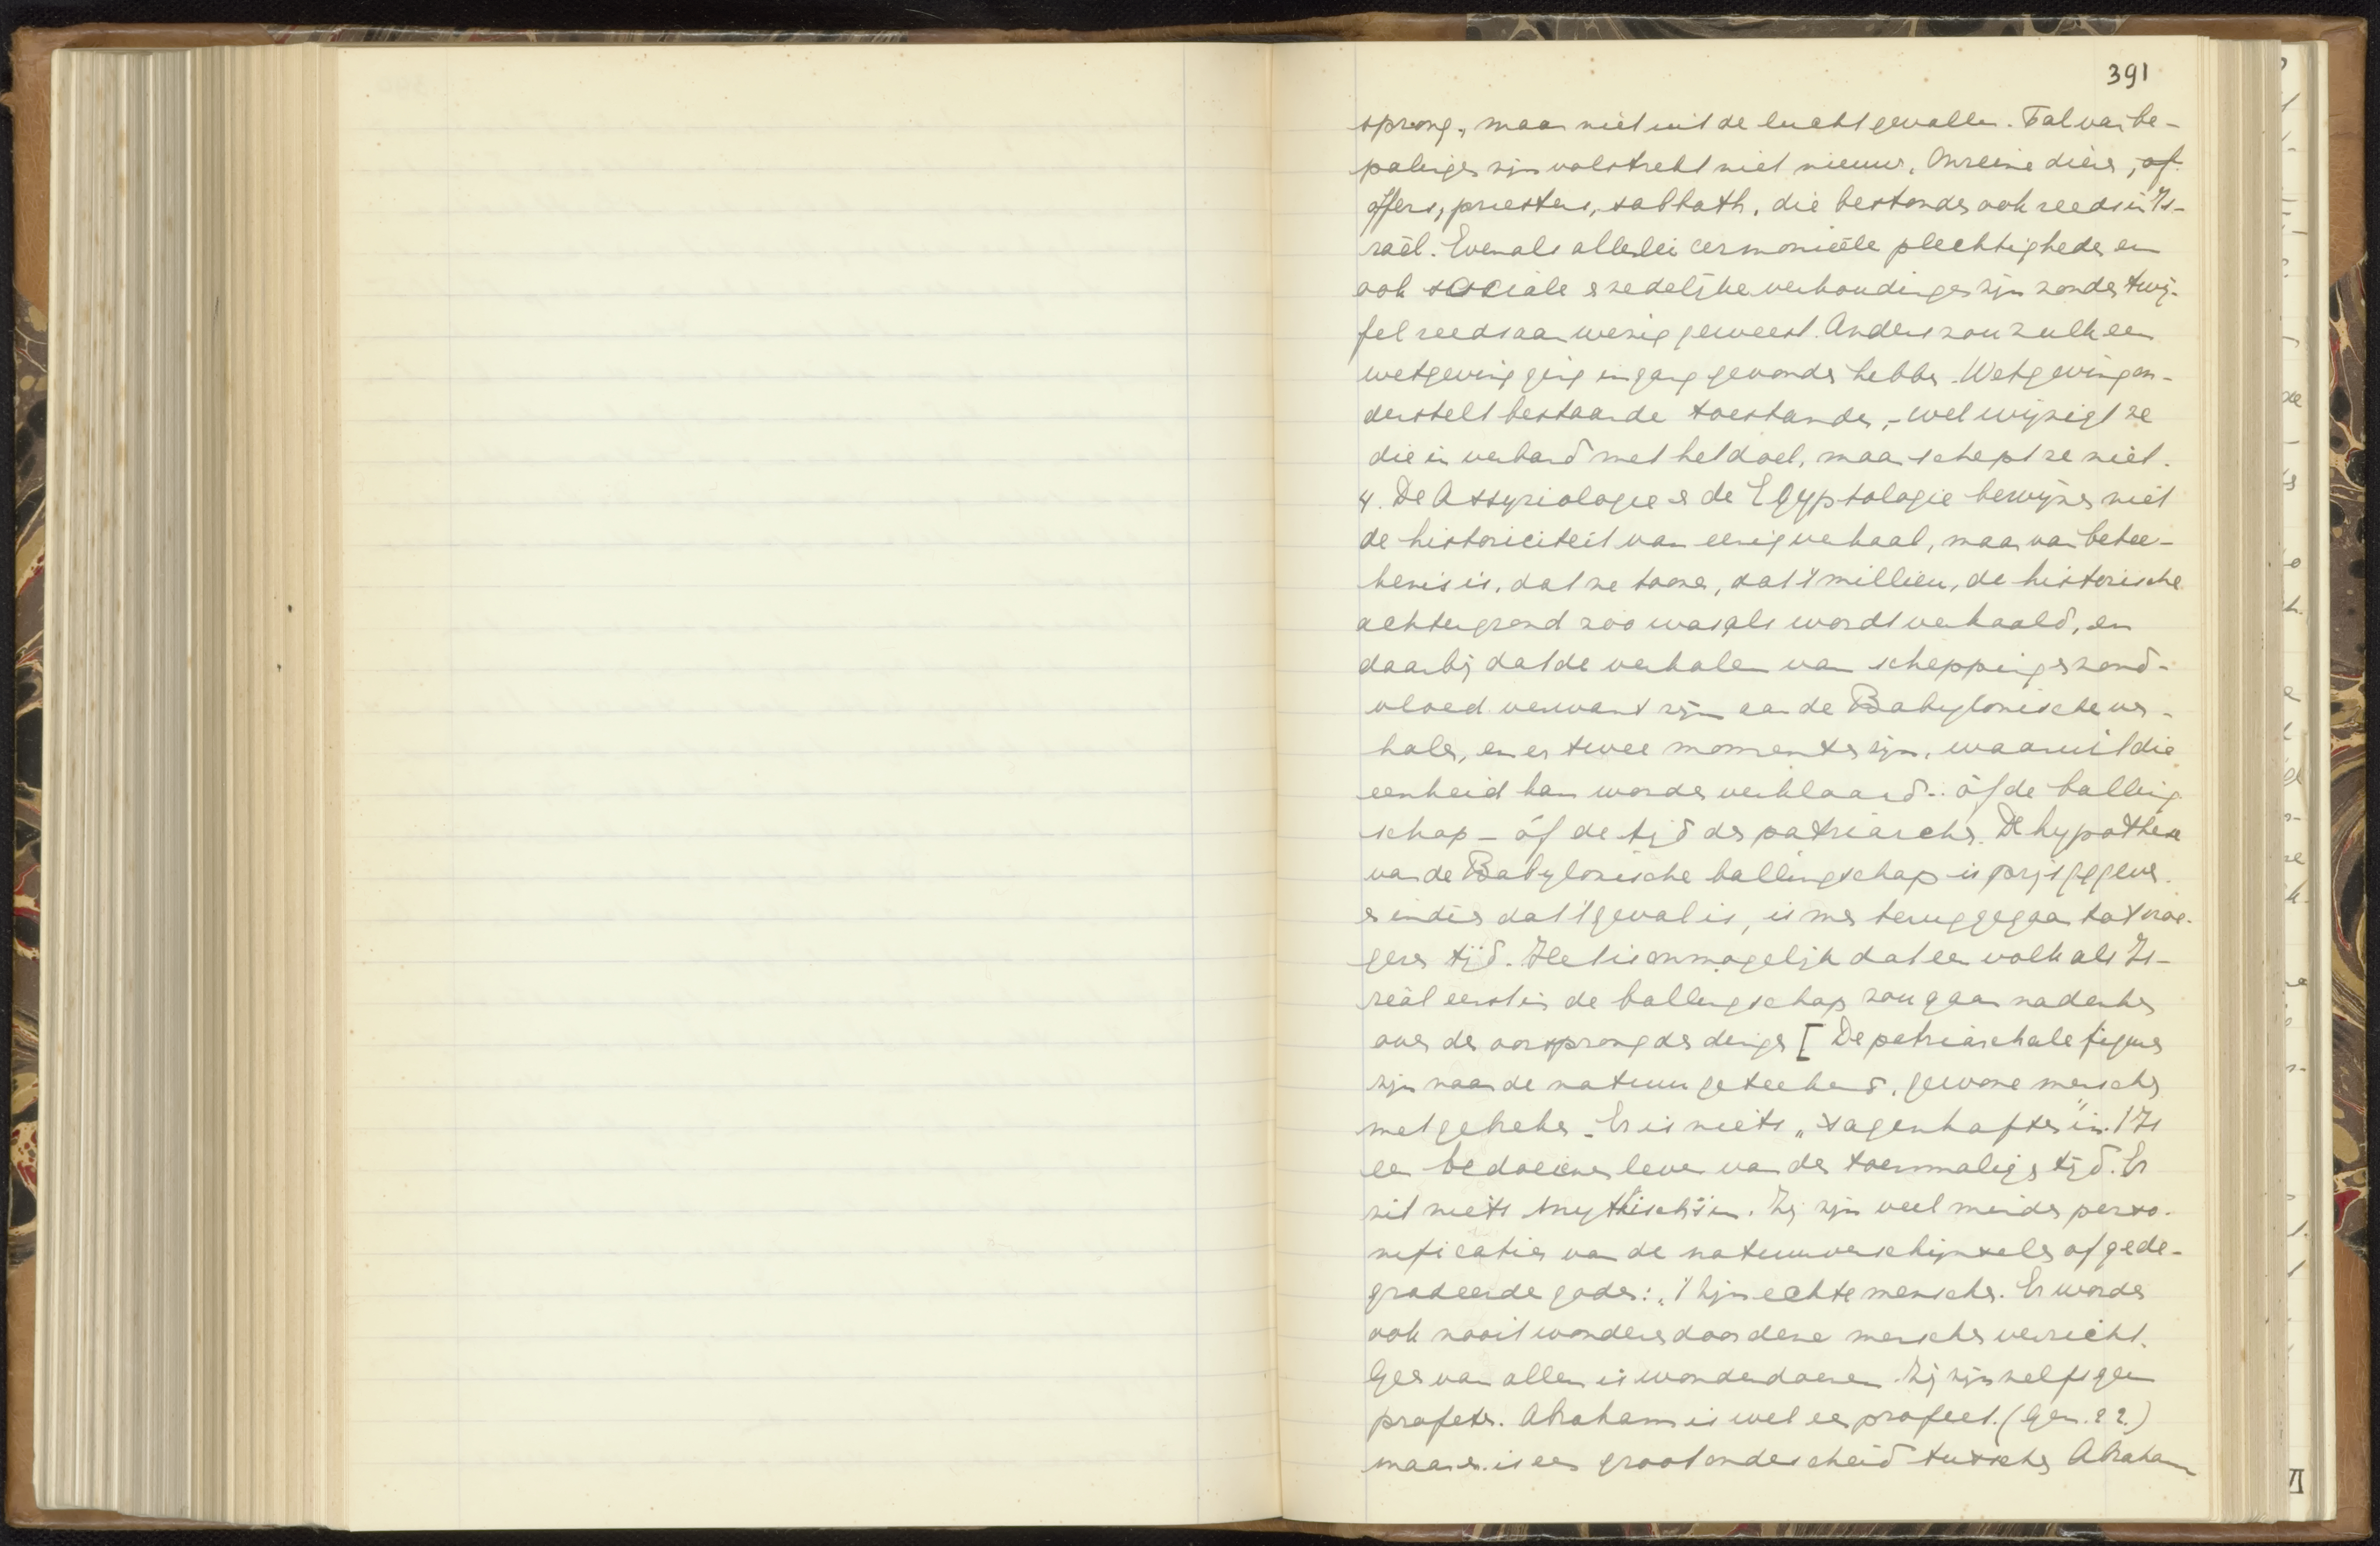 391
sprong, maar niet uit de lucht gevallen. Tal van be-
palingen zijn volstrekt niet nieuw. Onreine dieren, of
offers, priesters, sabbath, die bestonden ook reeds in Is-
raël. Evenals allerlei cermoniëele plechtigheden en
ook sociale en zedelijke verhoudingen zijn zonder twij-
fel reeds aanwezig geweest. Anders zou zulk een
wetgeving geen ingang gevonden hebben. Wetgeving on-
derstelt bestaande toestanden, - wel wijzigt ze
die in verband met het doel, maar schept ze niet.
4. De Assyriologie en de Egyptologie bewijzen niet
de historiciteit van eenig verhaal, maar van betee-
kenis is, dat ze toonen, dat 't millieu, de historische
achtergrond zoo was als wordt verhaald, en
daarbij dat de verhalen van schepping en zond-
vloed verwant zijn aan de Babylonische ver-
halen, en er twee momenten zijn, waaruit die
eenheid kan worden verklaard: òf de balling
schap - óf de tijd der patriarchen. De hypothese
van de Babylonische ballingschap is prijsgegeven.
en indien dat 't geval is, is men teruggegaan tot vroe-
geren tijd. Het is onmogelijk dat een volk als Is-
reäl eerst in de ballingschap zou gaan nadenken
over den oorsprong der dingen [ De patriarchale figuren
zijn naar de natuur geteekend, gewone menschen
met gebreken. Er is niets „sagenhaftes" in. 't Is
een bedoeinen leven van den toenmaligen tijd. Er
zit niets mythisch's in. Zij zijn veel minder perso-
nificaties van de natuurverschijnselen of gede-
gradeerde goden: 't zijn echte menschen. Er worden
ook nooit wonderen door deze menschen verricht.
Geen van allen is wonderdoener. Zij zijn zelfs geen
profeten. Abraham is wel een profeet. (Gen. 22.)
maar er is een groot onderscheid tusschen Abraham